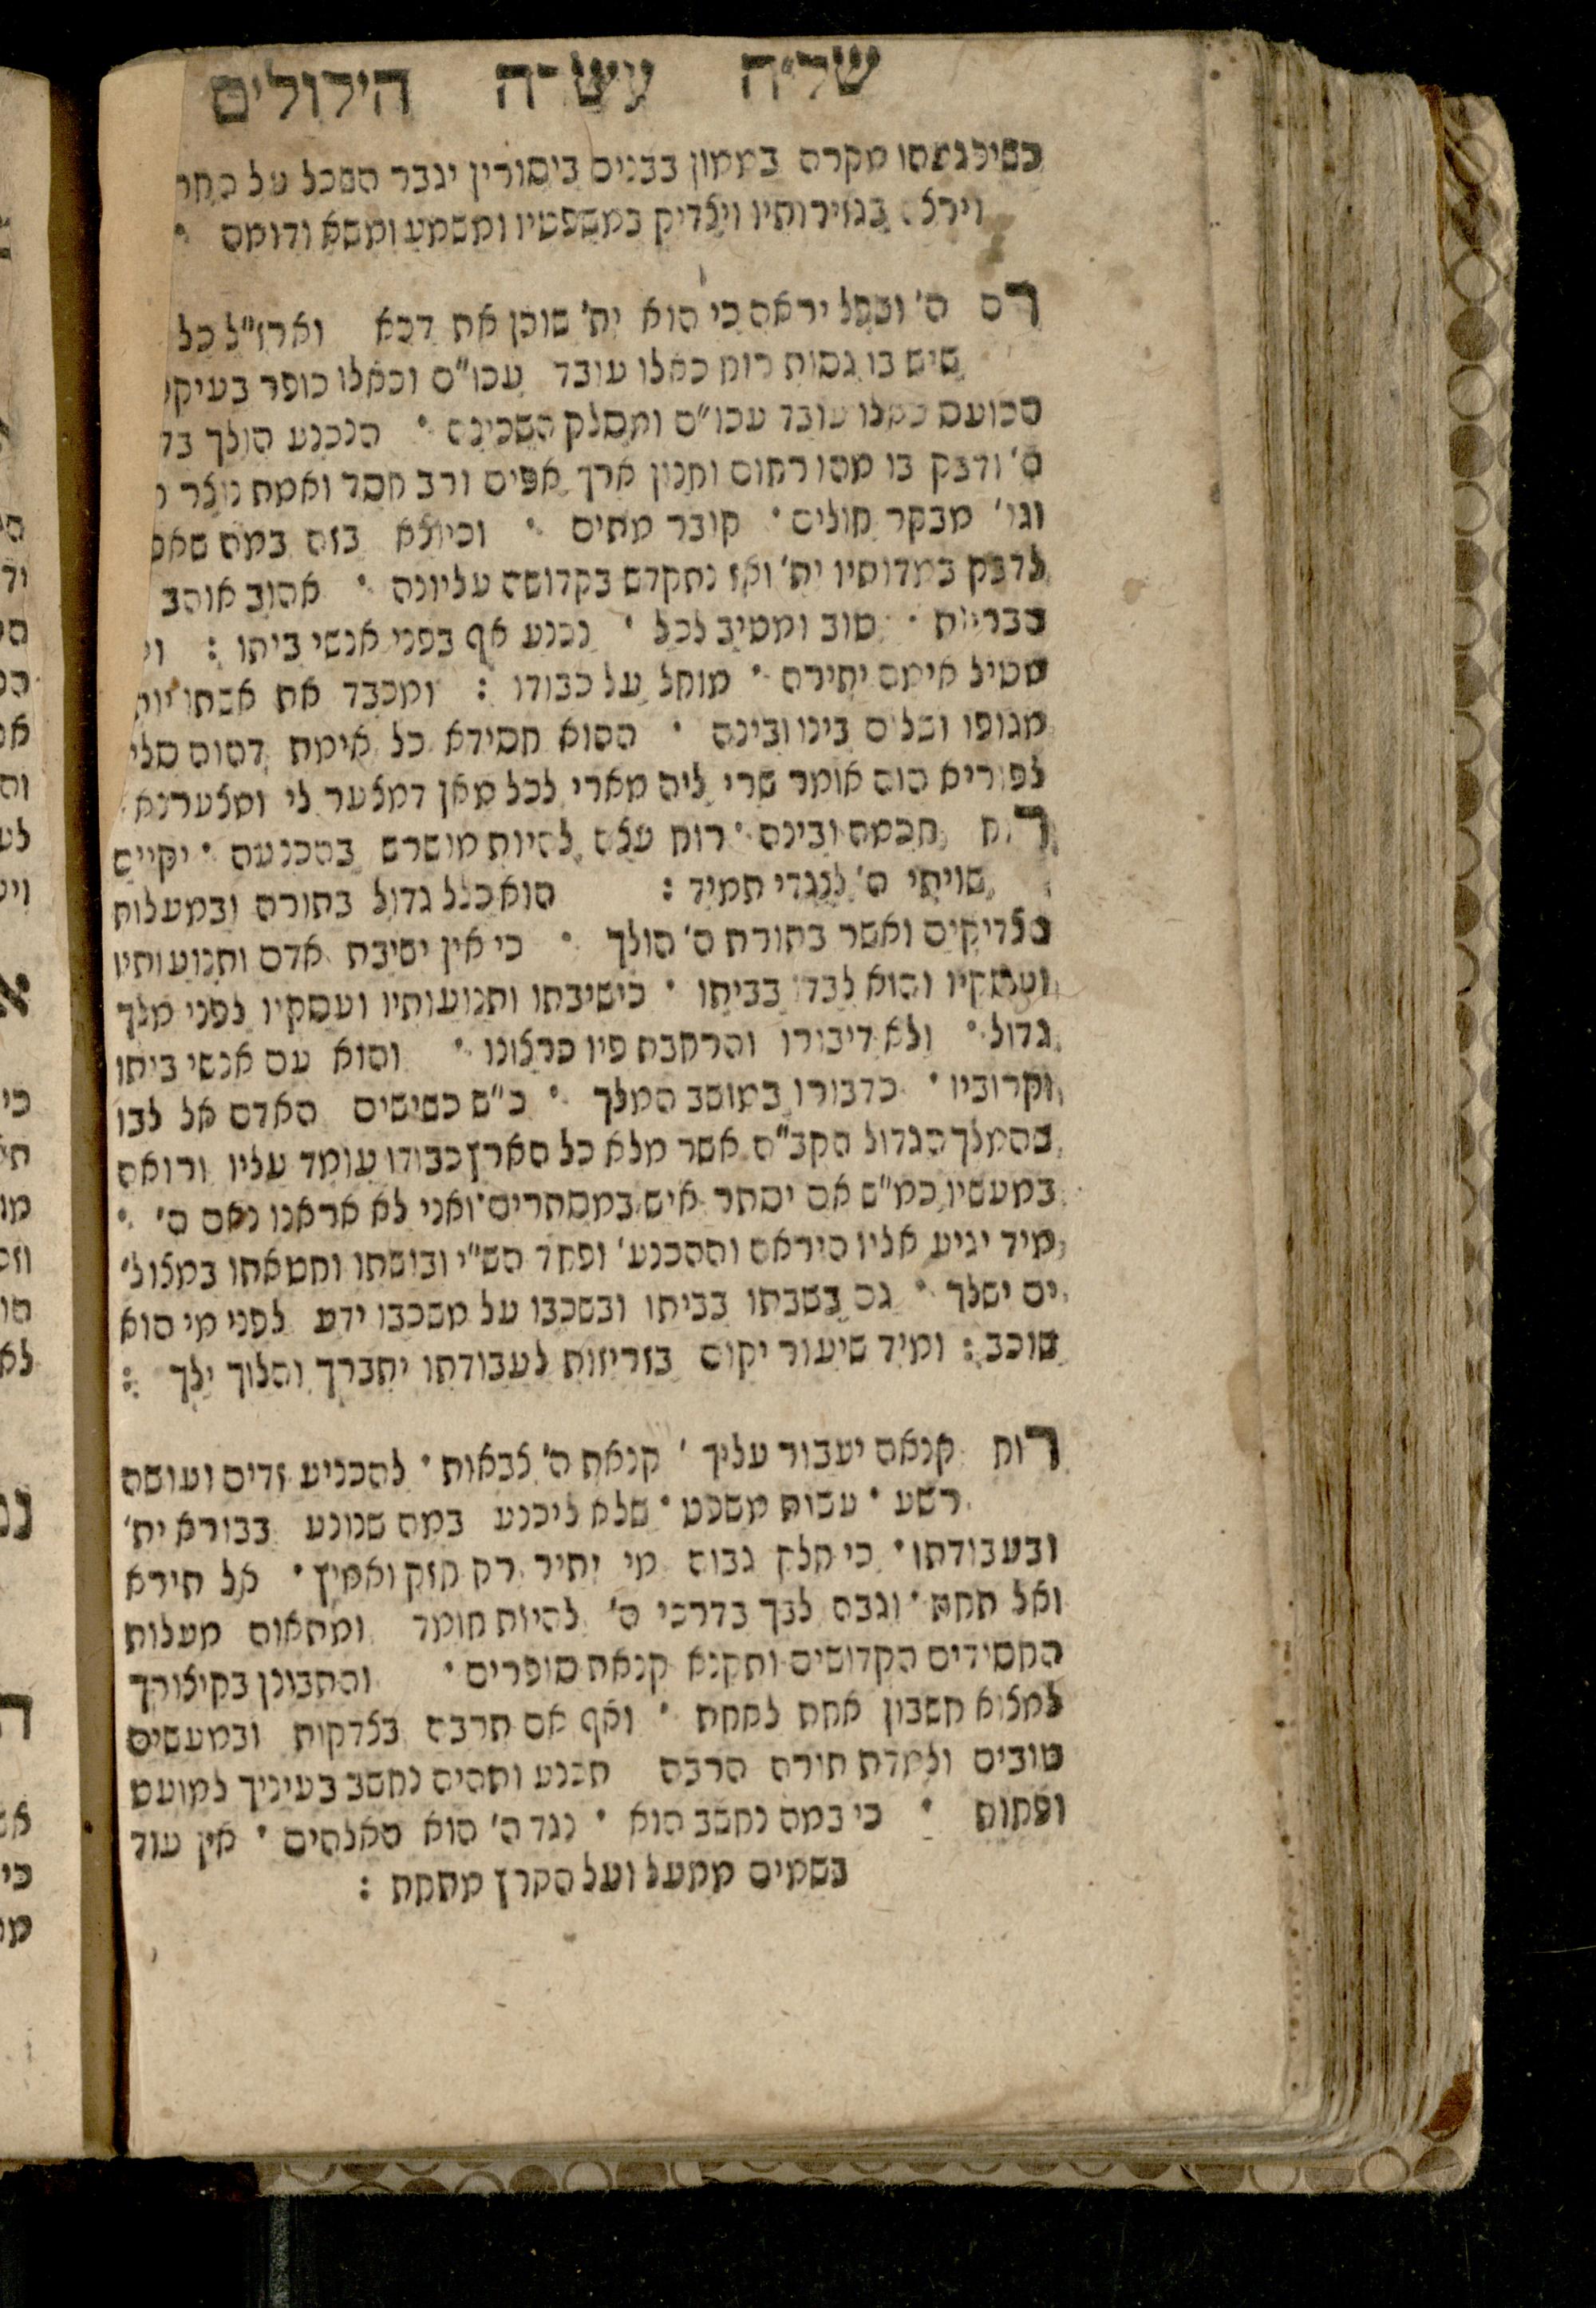 של״ה עש״ה הילולים
כשיפגעהו מקרה בממון בבנים ביסורין יגבר השכל על
בגזירותיו ויצדיק במשפטיו ומשמע ומשא ודומה
רם ה׳ ושפל יראה כי הוא ית׳ שוכן את דכא וארז״ל כל
שיש בו גסות רוח כאלו עובד עכו״ם וכאלו כופר
הכועס כאלו עובד עכו״ם ומסלק השכינה הנכנע הולך
ה׳ ודבק בו מהו רחום וחנון ארך אפים ורב חסד ואמת נוצר
וגו׳ מבקר חולים קובר מתים וכיוצא בזה במה
לדבק במדותיו ית׳ ואז נתקדש בקדושה עליונה אהוב אוהב
טוב ומטיב לכל נכנע אף בפני אנשי ביתו :
מטיל אימה יתירה מוחל על כבודו : ומכבד את אשתו
מגופו ושלום בינו ובינה ההוא חסידא כל אימת דהוה
לפוריא הוה אומר שרי ליה מארי לכל מאן דמצער לי
רוח חכמה ובינה רוח עצה להיות מושרש בהכנעה יקיים
שויתי ה׳ לנגדי תמיד : הוא כלל גדול בתורה ובמעלות
הצדיקים ואשר בתורת ה׳ הולך כי אין ישיבת אדם ותנועותיו
ועסקיו והוא לבדו בביתו כישיבתו ותנועותיו ועסקיו לפני מלך
גדול ולא דיבורו והרחבת פיו כרצונו והוא עם אנשי ביתו
וקרוביו כדבורו במושב המלך כ״ש כשישים האדם אל לבו
שהמלך הגדול הקב״ה אשר מלא כל הארץ כבודו עומד עליו ורואה
במעשיו כמ״ש אם יסתר איש במסתרים ואני לא אראנו נאם ה׳
מיד יגיע אליו היראה וההכנע׳ ופחד הש״י ובושתו וחטאתו במצול׳
ים ישלך גם בשבתו בביתו ובשכבו על משכבו ידע לפני מי הוא
שוכב : ומיד שיעור יקום בזריזות לעבודתו יתברך והלוך ילך :
רוח קנאה יעבור עליך קנאת ה׳ צבאות להכניע זדים ועושה
רשע עשות משפט שלא ליכנע במה שנוגע בבורא ית׳
ובעבודתו כי חלק גבוה מי יתיר רק חזק ואמיץ אל תירא
ואל תחת וגבה לבך בדרכי ה׳ להיות חומד ומתאוה מעלות
החסידים הקדושים ותקנא קנאת סופרים והתבונן בקיצורך
למצוא חשבון אחת לאחת ואף אם תרבה בצדקות ובמעשים
טובים ולמדת תורה הרבה תכנע ותהיה נחשב בעיניך למועט
ופחות כי במה נחשב הוא נגד ה׳ הוא האלהים אין עוד
בשמים ממעל ועל הארץ מתחת :